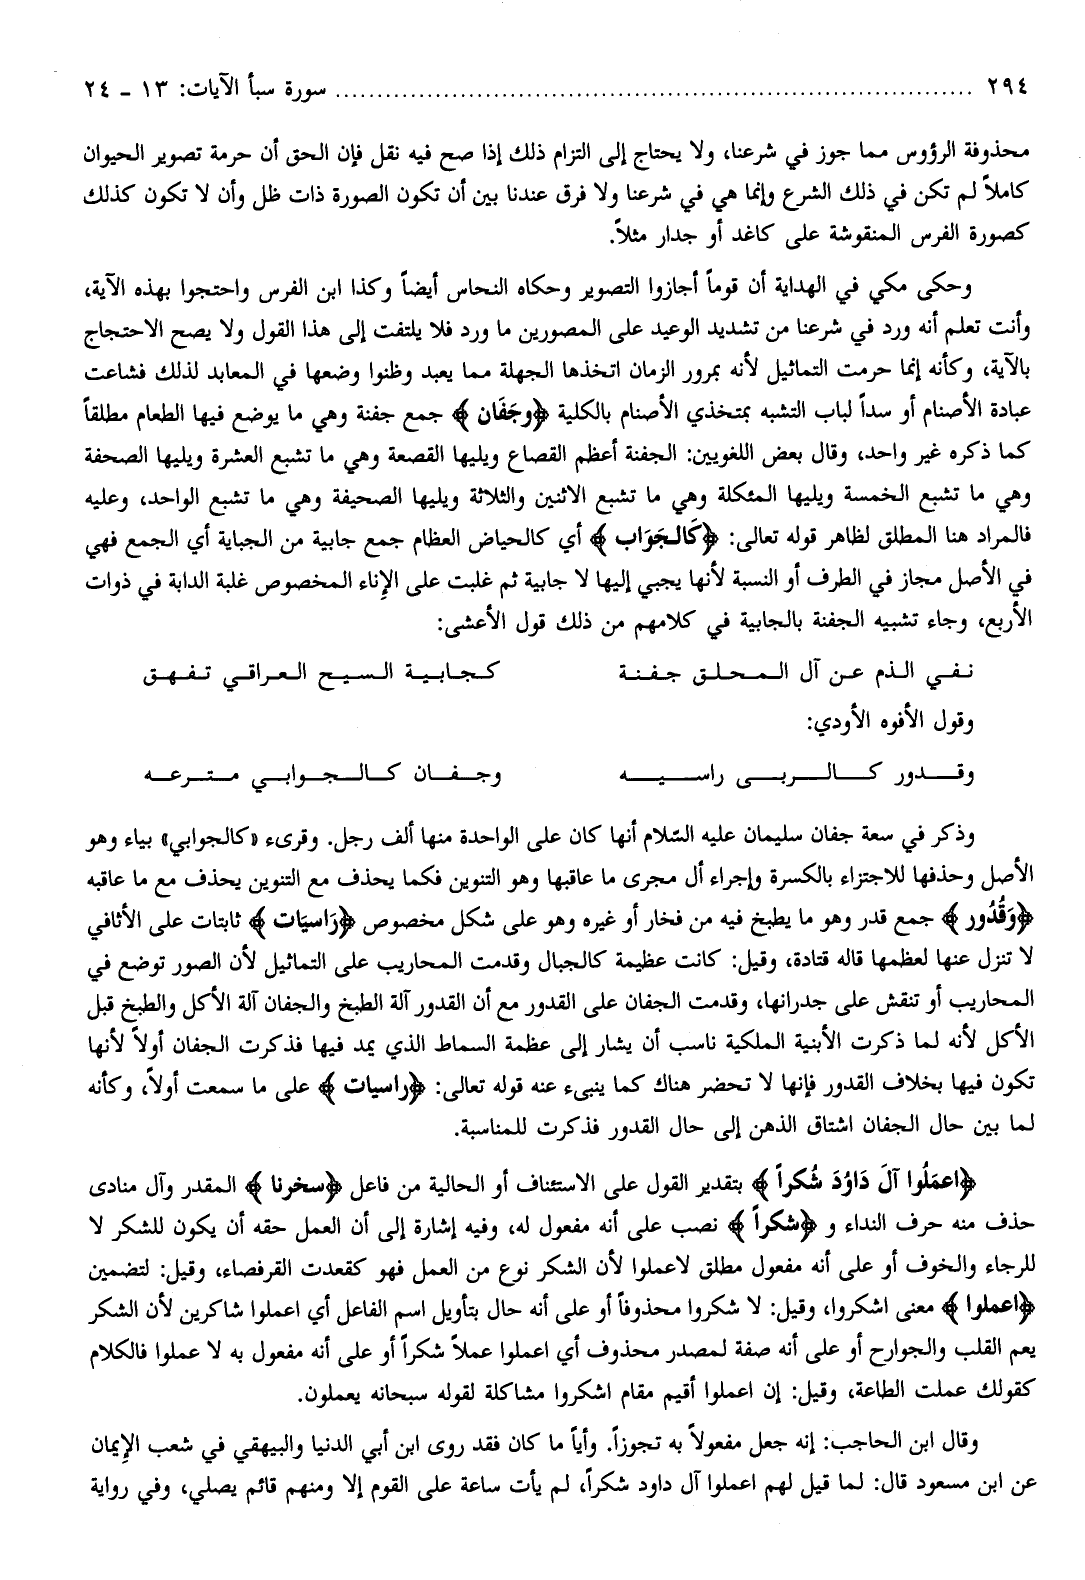 ٢٩٤ ........................................ سورة سبأ الآيات: ١٣ - ٢٤
محذوفة الرؤوس مما جوز في شرعنا، ولا يحتاج إلى التزام ذلك إذا صح فيه نقل فإن الحق أن حرمة تصوير الحيوان
كاملاً لم تكن في ذلك الشرع وإنما هي في شرعنا ولا فرق عندنا بين أن تكون الصورة ذات ظل وأن لا تكون كذلك
كصورة الفرس المنقوشة على كاغد أو جدار مثلاً.
وحكى مكي في الهداية أن قوماً أجازوا التصوير وحكاه النحاس أيضاً وكذا ابن الفرس واحتجوا بهذه الآية،
وأنت تعلم أنه ورد في شرعنا من تشديد الوعيد على المصورين ما ورد فلا يلتفت إلى هذا القول ولا يصح الاحتجاج
بالآية، وكأنه إنما حرمت التماثيل لأنه بمرور الزمان اتخذها الجهلة مما يعبد وظنوا وضعها في المعابد لذلك فشاعت
عبادة الأصنام أو سداً لباب التشبه بمتخذي الأصنام بالكلية ﴿وجَفَان﴾ جمع جفنة وهي ما يوضع فيها الطعام مطلقاً
كما ذكره غير واحد، وقال بعض اللغويين: الجفنة أعظم القصاع ويليها القصعة وهي ما تشبع العشرة ويليها الصحفة
وهي ما تشبع الخمسة ويليها المئكلة وهي ما تشبع الاثنين والثلاثة ويليها الصحيفة وهي ما تشبع الواحد، وعليه
فالمراد هنا المطلق لظاهر قوله تعالى: ﴿كَالجَوَاب﴾ أي كالحياض العظام جمع جابية من الجباية أي الجمع فهي
في الأصل مجاز في الطرف أو النسبة لأنها يجبي إليها لا جابية ثم غلبت على الإناء المخصوص غلبة الدابة في ذوات
الأربع، وجاء تشبيه الجفنة بالجابية في كلامهم من ذلك قول الأعشى:
نفي الذم عن آل المحلق جفنة كجابية السيح العراقي تفهق
وقول الأفوه الأودي:
وقدور كالربى راسيه وجفان كالجوابي مترعه
وذكر في سعة جفان سليمان عليه السّلام أنها كان على الواحدة منها ألف رجل. وقرىء «كالجوابي» بياء وهو
الأصل وحذفها للاجتزاء بالكسرة وإجراء أل مجرى ما عاقبها وهو التنوين فكما يحذف مع التنوين يحذف مع ما عاقبه
﴿وَقُدُور﴾ جمع قدر وهو ما يطبخ فيه من فخار أو غيره وهو على شكل مخصوص ﴿رَاسيَات﴾ ثابتات على الأثافي
لا تنزل عنها لعظمها قاله قتادة، وقيل: كانت عظيمة كالجبال وقدمت المحاريب على التماثيل لأن الصور توضع في
المحاريب أو تنقش على جدرانها، وقدمت الجفان على القدور مع أن القدور آلة الطبخ والجفان آلة الأكل والطبخ قبل
الأكل لأنه لما ذكرت الأبنية الملكية ناسب أن يشار إلى عظمة السماط الذي يمد فيها فذكرت الجفان أولاً لأنها
تكون فيها بخلاف القدور فإنها لا تحضر هناك كما ينبىء عنه قوله تعالى: ﴿راسيات﴾ على ما سمعت أولاً، وكأنه
لما بين حال الجفان اشتاق الذهن إلى حال القدور فذكرت للمناسبة.
﴿اعمَلُوا آلَ دَاوُدَ شُكراً﴾ بتقدير القول على الاستئناف أو الحالية من فاعل ﴿سخرنا﴾ المقدر وآل منادى
حذف منه حرف النداء و ﴿شكراً﴾ نصب على أنه مفعول له، وفيه إشارة إلى أن العمل حقه أن يكون للشكر لا
للرجاء والخوف أو على أنه مفعول مطلق لاعملوا لأن الشكر نوع من العمل فهو كقعدت القرفصاء، وقيل: لتضمين
﴿اعملوا﴾ معنى اشكروا، وقيل: لا شكروا محذوفاً أو على أنه حال بتأويل اسم الفاعل أي اعملوا شاكرين لأن الشكر
يعم القلب والجوارح أو على أنه صفة لمصدر محذوف أي اعملوا عملاً شكراً أو على أنه مفعول به لا عملوا فالكلام
كقولك عملت الطاعة، وقيل: إن اعملوا أقيم مقام اشكروا مشاكلة لقوله سبحانه يعملون.
وقال ابن الحاجب: إنه جعل مفعولاً به تجوزاً. وأياً ما كان فقد روى ابن أبي الدنيا والبيهقي في شعب الإيمان
عن ابن مسعود قال: لما قيل لهم اعملوا آل داود شكراً، لم يأت ساعة على القوم إلا ومنهم قائم يصلي، وفي رواية